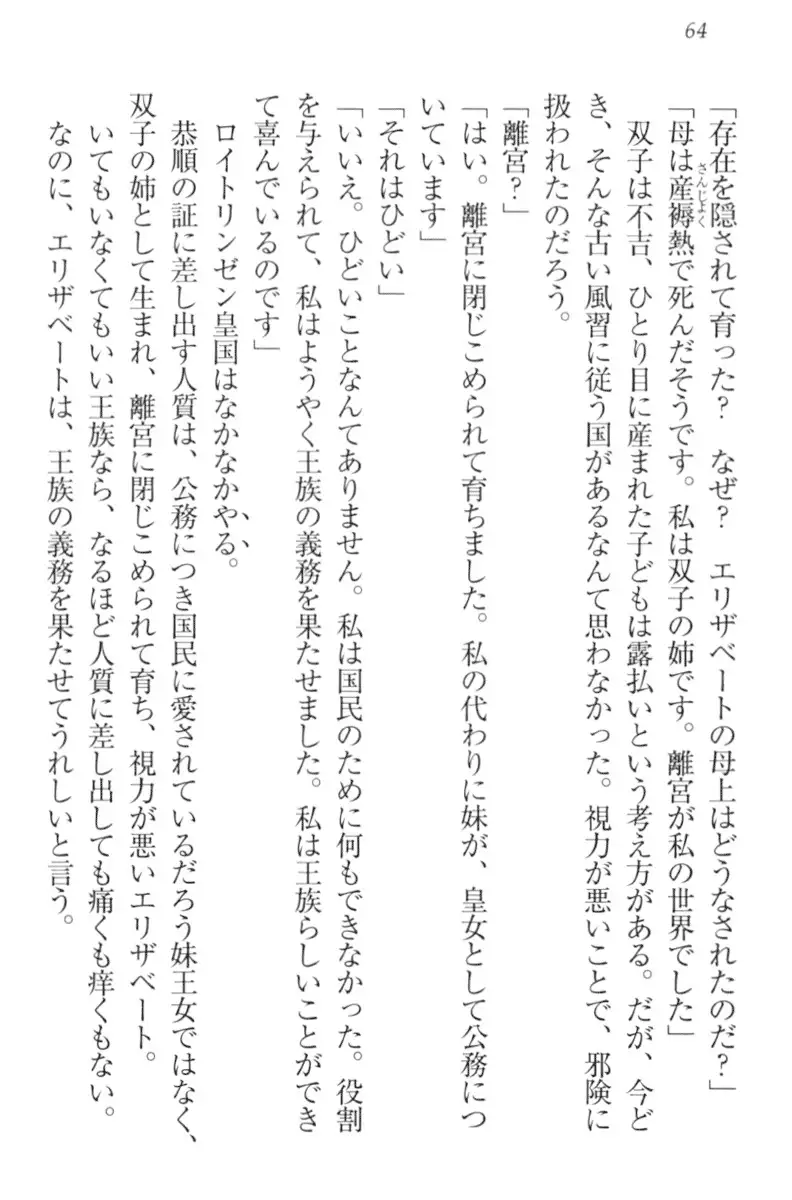 64
「存在を隠されて育った？　なぜ？　エリザベートの母上はどうなされたのだ？」
「母は産褥熱で死んだそうです。私は双子の姉です。離宮が私の世界でした」
さんじょく
双子は不吉、ひとり目に産まれた子どもは露払いという考え方がある。だが、今ど
き、そんな古い風習に従う国があるなんて思わなかった。視力が悪いことで、邪険に
扱われたのだろう。
「離宮？」
「はい。離宮に閉じこめられて育ちました。私の代わりに妹が、皇女として公務につ
いています」
「それはひどい」
「いいえ。ひどいことなんてありません。私は国民のために何もできなかった。役割
を与えられて、私はようやく王族の義務を果たせました。私は王族らしいことができ
て喜んでいるのです」
ロイトリンゼン皇国はなかなかやる。
恭順の証に差し出す人質は、公務につき国民に愛されているだろう妹王女ではなく、
双子の姉として生まれ、離宮に閉じこめられて育ち、視力が悪いエリザベート。
いてもいなくてもいい王族なら、なるほど人質に差し出しても痛くも痒くもない。
なのに、エリザベートは、王族の義務を果たせてうれしいと言う。